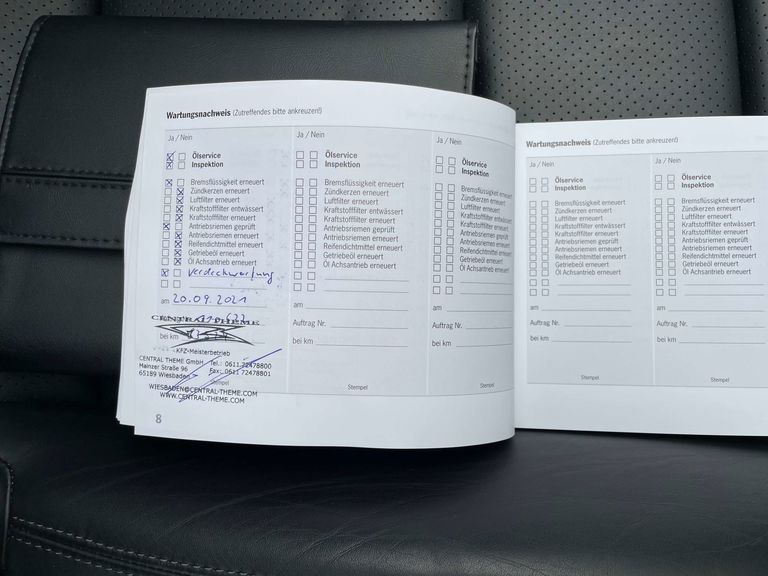 Wartungsnachweis (Zutreffendes bitte ankreuzen!)
Ja / Nein
Ölservice
Inspektion
Bremsflüssigkeit erneuert
Zündkerzen erneuert
Luftfilter erneuert
Kraftstofffilter entwässert
Kraftstofffilter erneuert
Antriebsriemen geprüft
Antriebsriemen erneuert
Reifendichtmittel erneuert
Getriebeöl erneuert
Öl Achsantrieb erneuert
Verdeckwartung
am 20.09.2021
CENTRAL THEME
bei km
KFZ-Meisterbetrieb
CENTRAL THEME GmbH Tel.: 0611 72478800
Mainzer Straße 96 Fax: 0611 72478801
65189 Wiesbaden
Stempel
WIESBADEN@CENTRAL-THEME.COM
WWW.CENTRAL-THEME.COM
8
Ja / Nein
Ölservice
Inspektion
Bremsflüssigkeit erneuert
Zündkerzen erneuert
Luftfilter erneuert
Kraftstofffilter entwässert
Kraftstofffilter erneuert
Antriebsriemen geprüft
Antriebsriemen erneuert
Reifendichtmittel erneuert
Getriebeöl erneuert
Öl Achsantrieb erneuert
am
Auftrag Nr.
bei km
Stempel
Ja / Nein
Ölservice
Inspektion
Bremsflüssigkeit erneuert
Zündkerzen erneuert
Luftfilter erneuert
Kraftstofffilter entwässert
Kraftstofffilter erneuert
Antriebsriemen geprüft
Antriebsriemen erneuert
Reifendichtmittel erneuert
Getriebeöl erneuert
Öl Achsantrieb erneuert
am
Auftrag Nr.
bei km
Stempel
Wartungsnachweis (Zutreffendes bitte ankreuzen!)
Ja / Nein
Ölservice
Inspektion
Bremsflüssigkeit erneuert
Zündkerzen erneuert
Luftfilter erneuert
Kraftstofffilter entwässert
Kraftstofffilter erneuert
Antriebsriemen geprüft
Antriebsriemen erneuert
Reifendichtmittel erneuert
Getriebeöl erneuert
Öl Achsantrieb erneuert
am
Auftrag Nr.
bei km
Stempel
Ja / Nein
Ölservice
Inspektion
Bremsflüssigkeit erneuert
Zündkerzen erneuert
Luftfilter erneuert
Kraftstofffilter entwässert
Kraftstofffilter erneuert
Antriebsriemen geprüft
Antriebsriemen erneuert
Reifendichtmittel erneuert
Getriebeöl erneuert
Öl Achsantrieb erneuert
am
Auftrag Nr.
bei km
Stempel